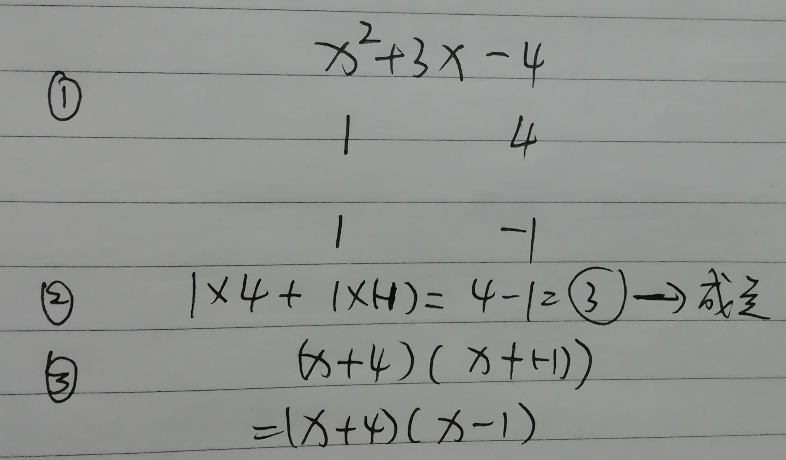 x²+3x-4
①
1 4
1 -1
② 1×4+1×(-1)=4-1=③→成立
③ (x+4)(x+(-1))
=(x+4)(x-1)